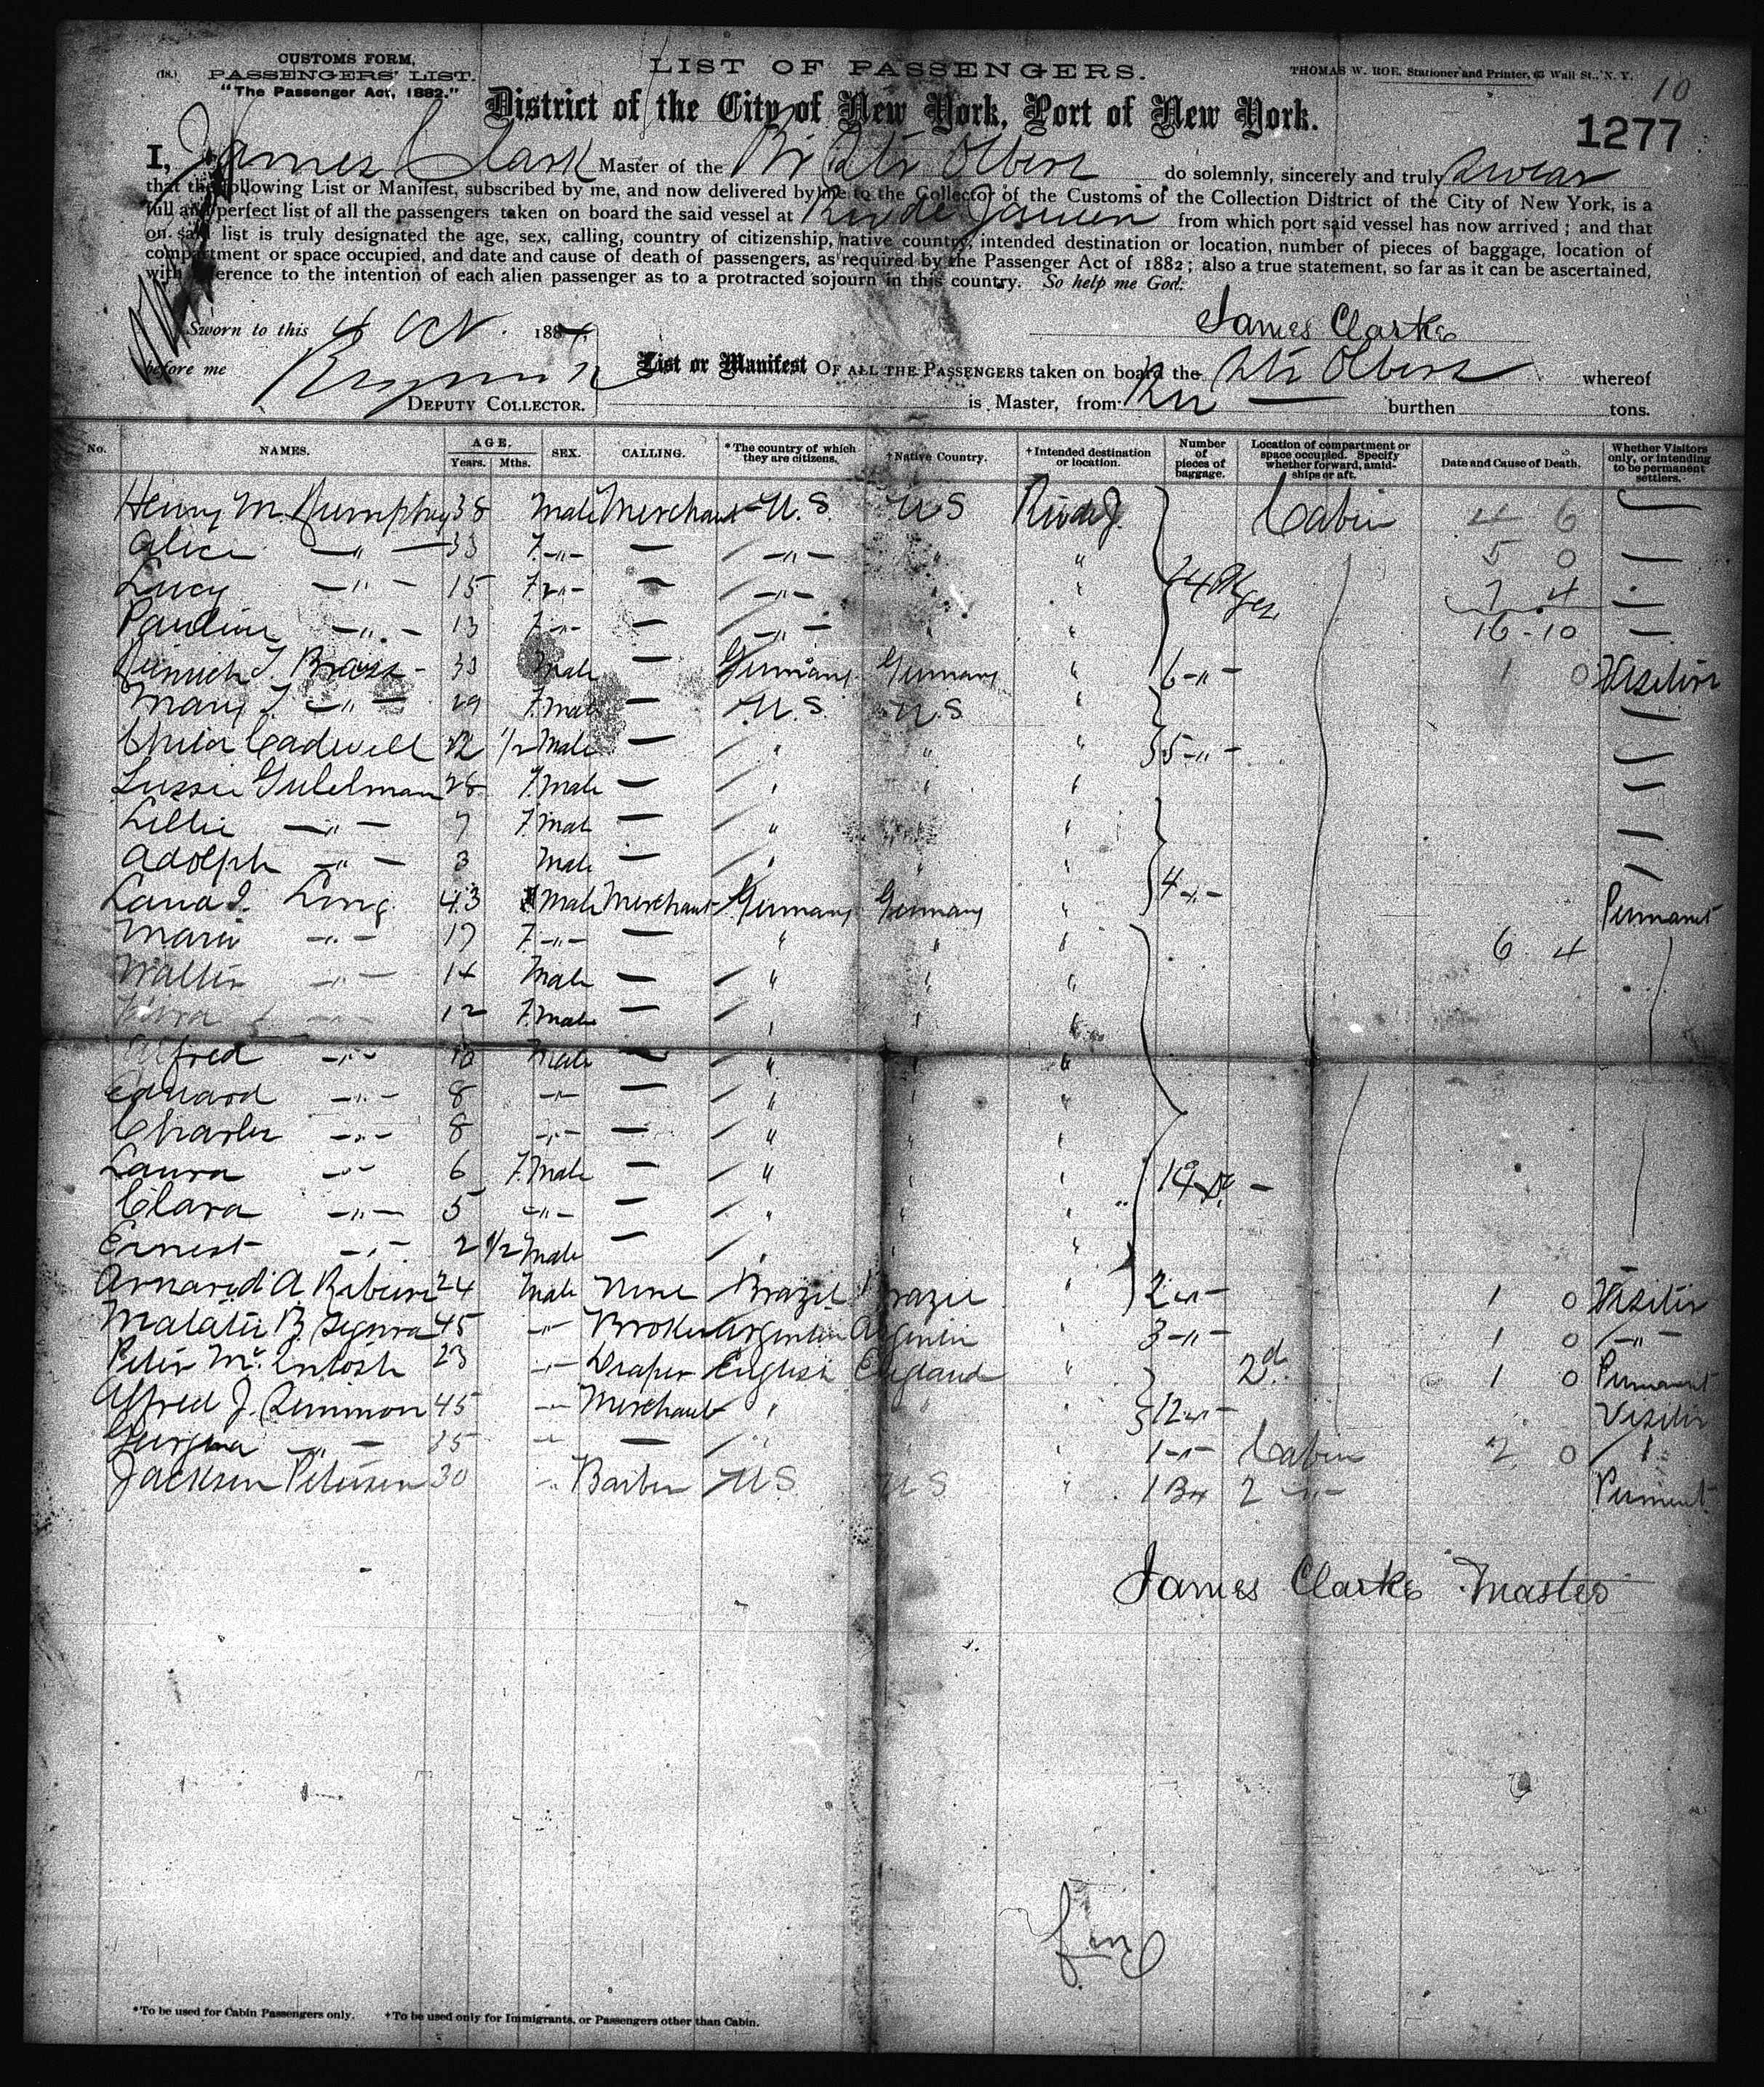 CUSTOMS FORM,
(18.) PASSENGERS' LIST.
"The Passenger Act, 1882."
LIST OF PASSENGERS.
THOMAS W. ROE, Stationer and Printer, 63 Wall St., N. Y.
10
District of the City of New York, Port of New York.
1277
I, James Clark Master of the Br Str Olbers do solemnly, sincerely and truly swear
that the following List or Manifest, subscribed by me, and now delivered by me to the Collector of the Customs of the Collection District of the City of New York, is a
full and perfect list of all the passengers taken on board the said vessel at Rio de Janeiro from which port said vessel has now arrived; and that
on said list is truly designated the age, sex, calling, country of citizenship, native country, intended destination or location, number of pieces of baggage, location of
compartment or space occupied, and date and cause of death of passengers, as required by the Passenger Act of 1882; also a true statement, so far as it can be ascertained,
with reference to the intention of each alien passenger as to a protracted sojourn in this country. So help me God.
Sworn to this 4 Oct. 1884
James Clarke
before me
List or Manifest OF ALL THE PASSENGERS taken on board the Str Olbers whereof
DEPUTY COLLECTOR.
is Master, from Rio — burthen tons.
No. NAMES. AGE. Years. Mths. SEX. CALLING. *The country of which they are citizens. †Native Country. †Intended destination or location. Number of pieces of baggage. Location of compartment or space occupied. Specify whether forward, amidships or aft. Date and Cause of Death. Whether Visitors only, or intending to be permanent settlers.
Henry M. Humphrey 38 Male Merchant U.S. U S Rio de J. Cabin 4 6 —
Alice —"— 33 F.—"— — —"— " " 5 0 —
Lucy —"— 15 F.—"— — —"— " 24 Pkges. 7 4 —
Pauline —"— 13 F.—"— — —"— " " 16-10 —
T. Brass 33 Male — Germany Germany " 6 —"— 1 0 Visitor
Mary T. —"— 29 F.Male — U.S. U.S. —
Cadwell 22 1/2 Male — " " " 5 —"— —
Lussie 28 F.Male — " " " —
Lillie —"— 7 F.Male — " " " —
Adolph —"— 3 Male — " " " —
Long 43 Male Merchant Germany Germany " 4 —"— Permanent
Maria —"— 17 F —"— — " " " 6 4
Walter —"— 14 Male — " " "
—"— 12 F.Male — " " "
Alfred —"— 10 Male — " " "
Eduard —"— 8 —"— — " " "
Charles —"— 8 —"— — " " "
Laura —"— 6 F.Male — " " " 19
Clara —"— 5 —"— — " " "
Ernest —"— 2 1/2 Male — " " "
A. 24 Male None Brazil Brazil " 2 —"— 1 0 Visitor
B. 45 —"— Broker Argentin Argentin 3 —"— 1 0 —"—
Peter Mc.Intosh 23 —"— Draper English England " 2d. 1 0 Permanent
Alfred J. 45 —"— Merchant " " " 12 —"— Visitor
—"— 35 —"— — " " 1 —"— Cabin 2 0 "
Jackson Peterson 30 —"— Barber U S U S " 1 Bx 2 —"— Perment
James Clarke Master
*To be used for Cabin Passengers only. †To be used only for Immigrants, or Passengers other than Cabin.